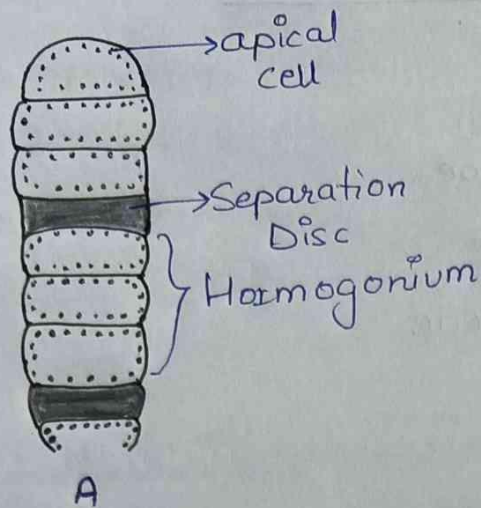 apical
cell
Separation
Disc
Hormogonium
A